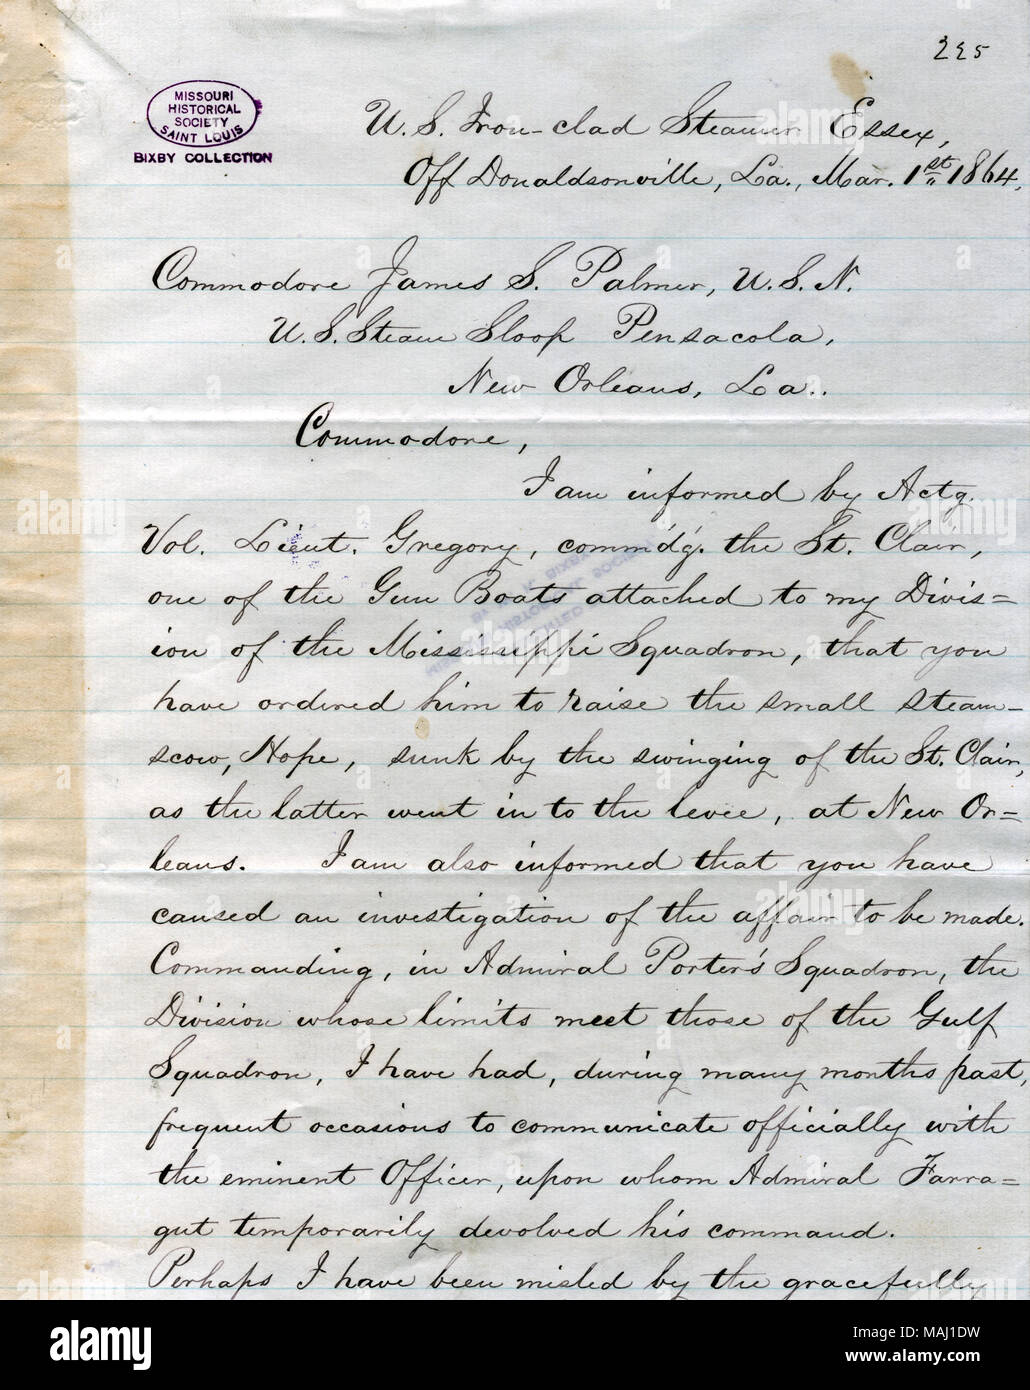 225
MISSOURI
HISTORICAL
SOCIETY
SAINT LOUIS
BIXBY COLLECTION
U.S. Iron-clad Steamer Essex,
Off Donaldsonville, La., Mar. 1st 1864,
Commodore James S. Palmer, U.S.N.
U.S. Steam Sloop Pensacola,
New Orleans, La..
Commodore,
I am informed by Actg.
Vol. Lieut. Gregory, commd'g. the St. Clair,
one of the Gun Boats attached to my Divis=
ion of the Mississippi Squadron, that you
have ordered him to raise the small steam-
scow, Hope, sunk by the swinging of the St. Clair,
as the latter went in to the levee, at New Or=
leans. I am also informed that you have
caused an investigation of the affair to be made.
Commanding, in Admiral Porter's Squadron, the
Division whose limits meet those of the Gulf
Squadron, I have had, during many months past,
frequent occasions to communicate officially with
the eminent Officer, upon whom Admiral Farra=
gut temporarily devolved his command.
Perhaps I have been misled by the gracefully
alamy
Image ID: MAJ1DW
www.alamy.com